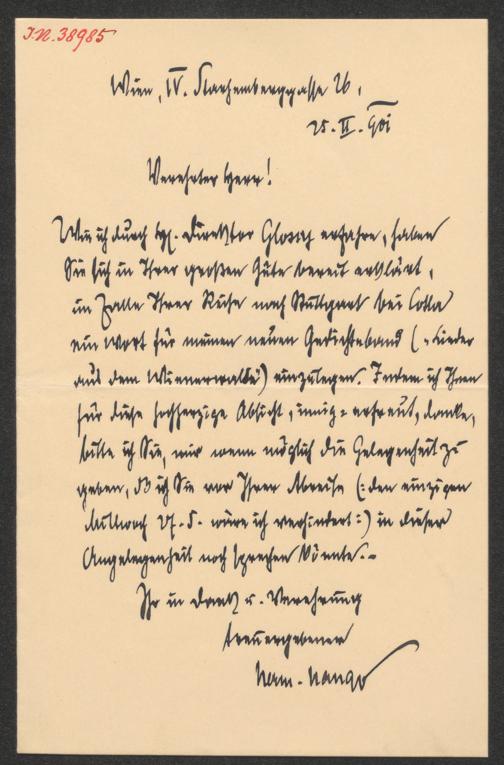 I.N. 38985
Wien, IV. Starhemberggasse 26,
25. II. 901
Verehrter Herr!
Wie ich durch H. Direktor Glossy erfahre, haben
Sie sich in Ihrer großen Güte bereit erklärt,
im Falle Ihrer Reise nach Stuttgart bei Cotta
ein Wort für meinen neuen Gedichteband (- Lieder
aus dem Wienerwalde) einzulegen. Indem ich Ihnen
für diese hochherzige Absicht, innig = erfreut, danke,
bitte ich Sie, mir wenn möglich die Gelegenheit zu
geben, daß ich Sie vor Ihrer Abreise (: den einzigen
Mittwoch 27. d. wäre ich verhindert :) in dieser
Angelegenheit noch sprechen könnte. -
Ihr in Dank u. Verehrung
treuergebener
Herm. Hango